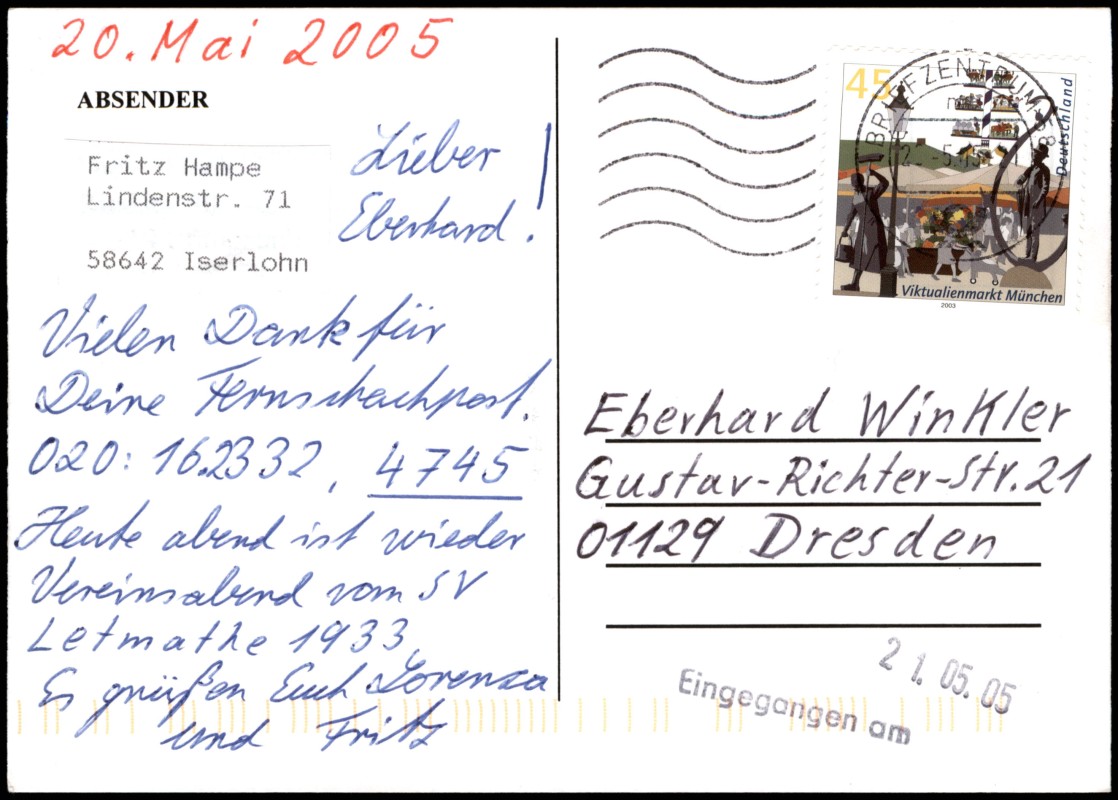 20. Mai 2005
ABSENDER
Fritz Hampe
Lindenstr. 71
58642 Iserlohn
Lieber
Eberhard!
Vielen Dank für
Deine Fernschachpost.
020: 16.2332, 4745
Heute abend ist wieder
Vereinsabend vom SV
Letmathe 1933,
Es grüßen Euch Lorenza
und Fritz
45
Deutschland
BRIEFZENTRUM 58
Viktualienmarkt München
2003
Eberhard Winkler
Gustav-Richter-Str. 21
01129 Dresden
Eingegangen am
21.05.05